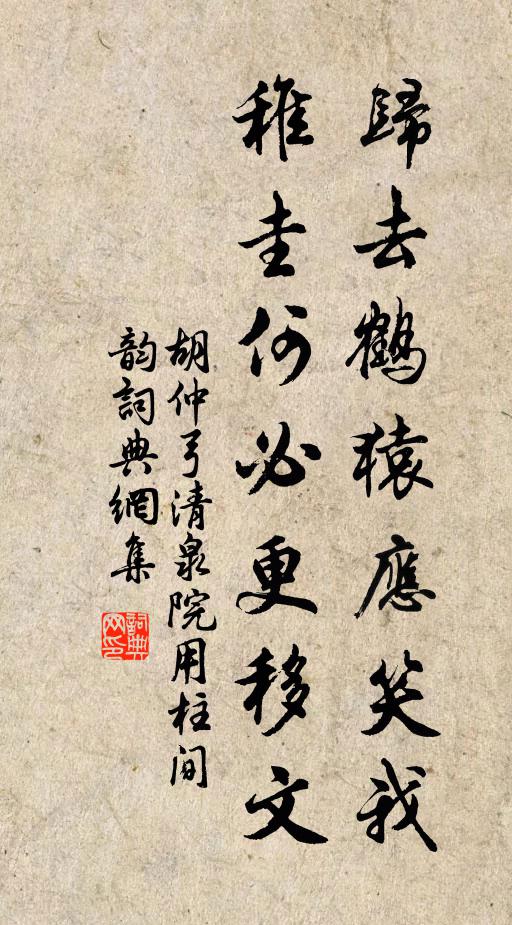 歸去鶴猿應笑我
稚圭何必更移文
胡仲弓清泉院用柱间
韵詞典網集
詞典网印